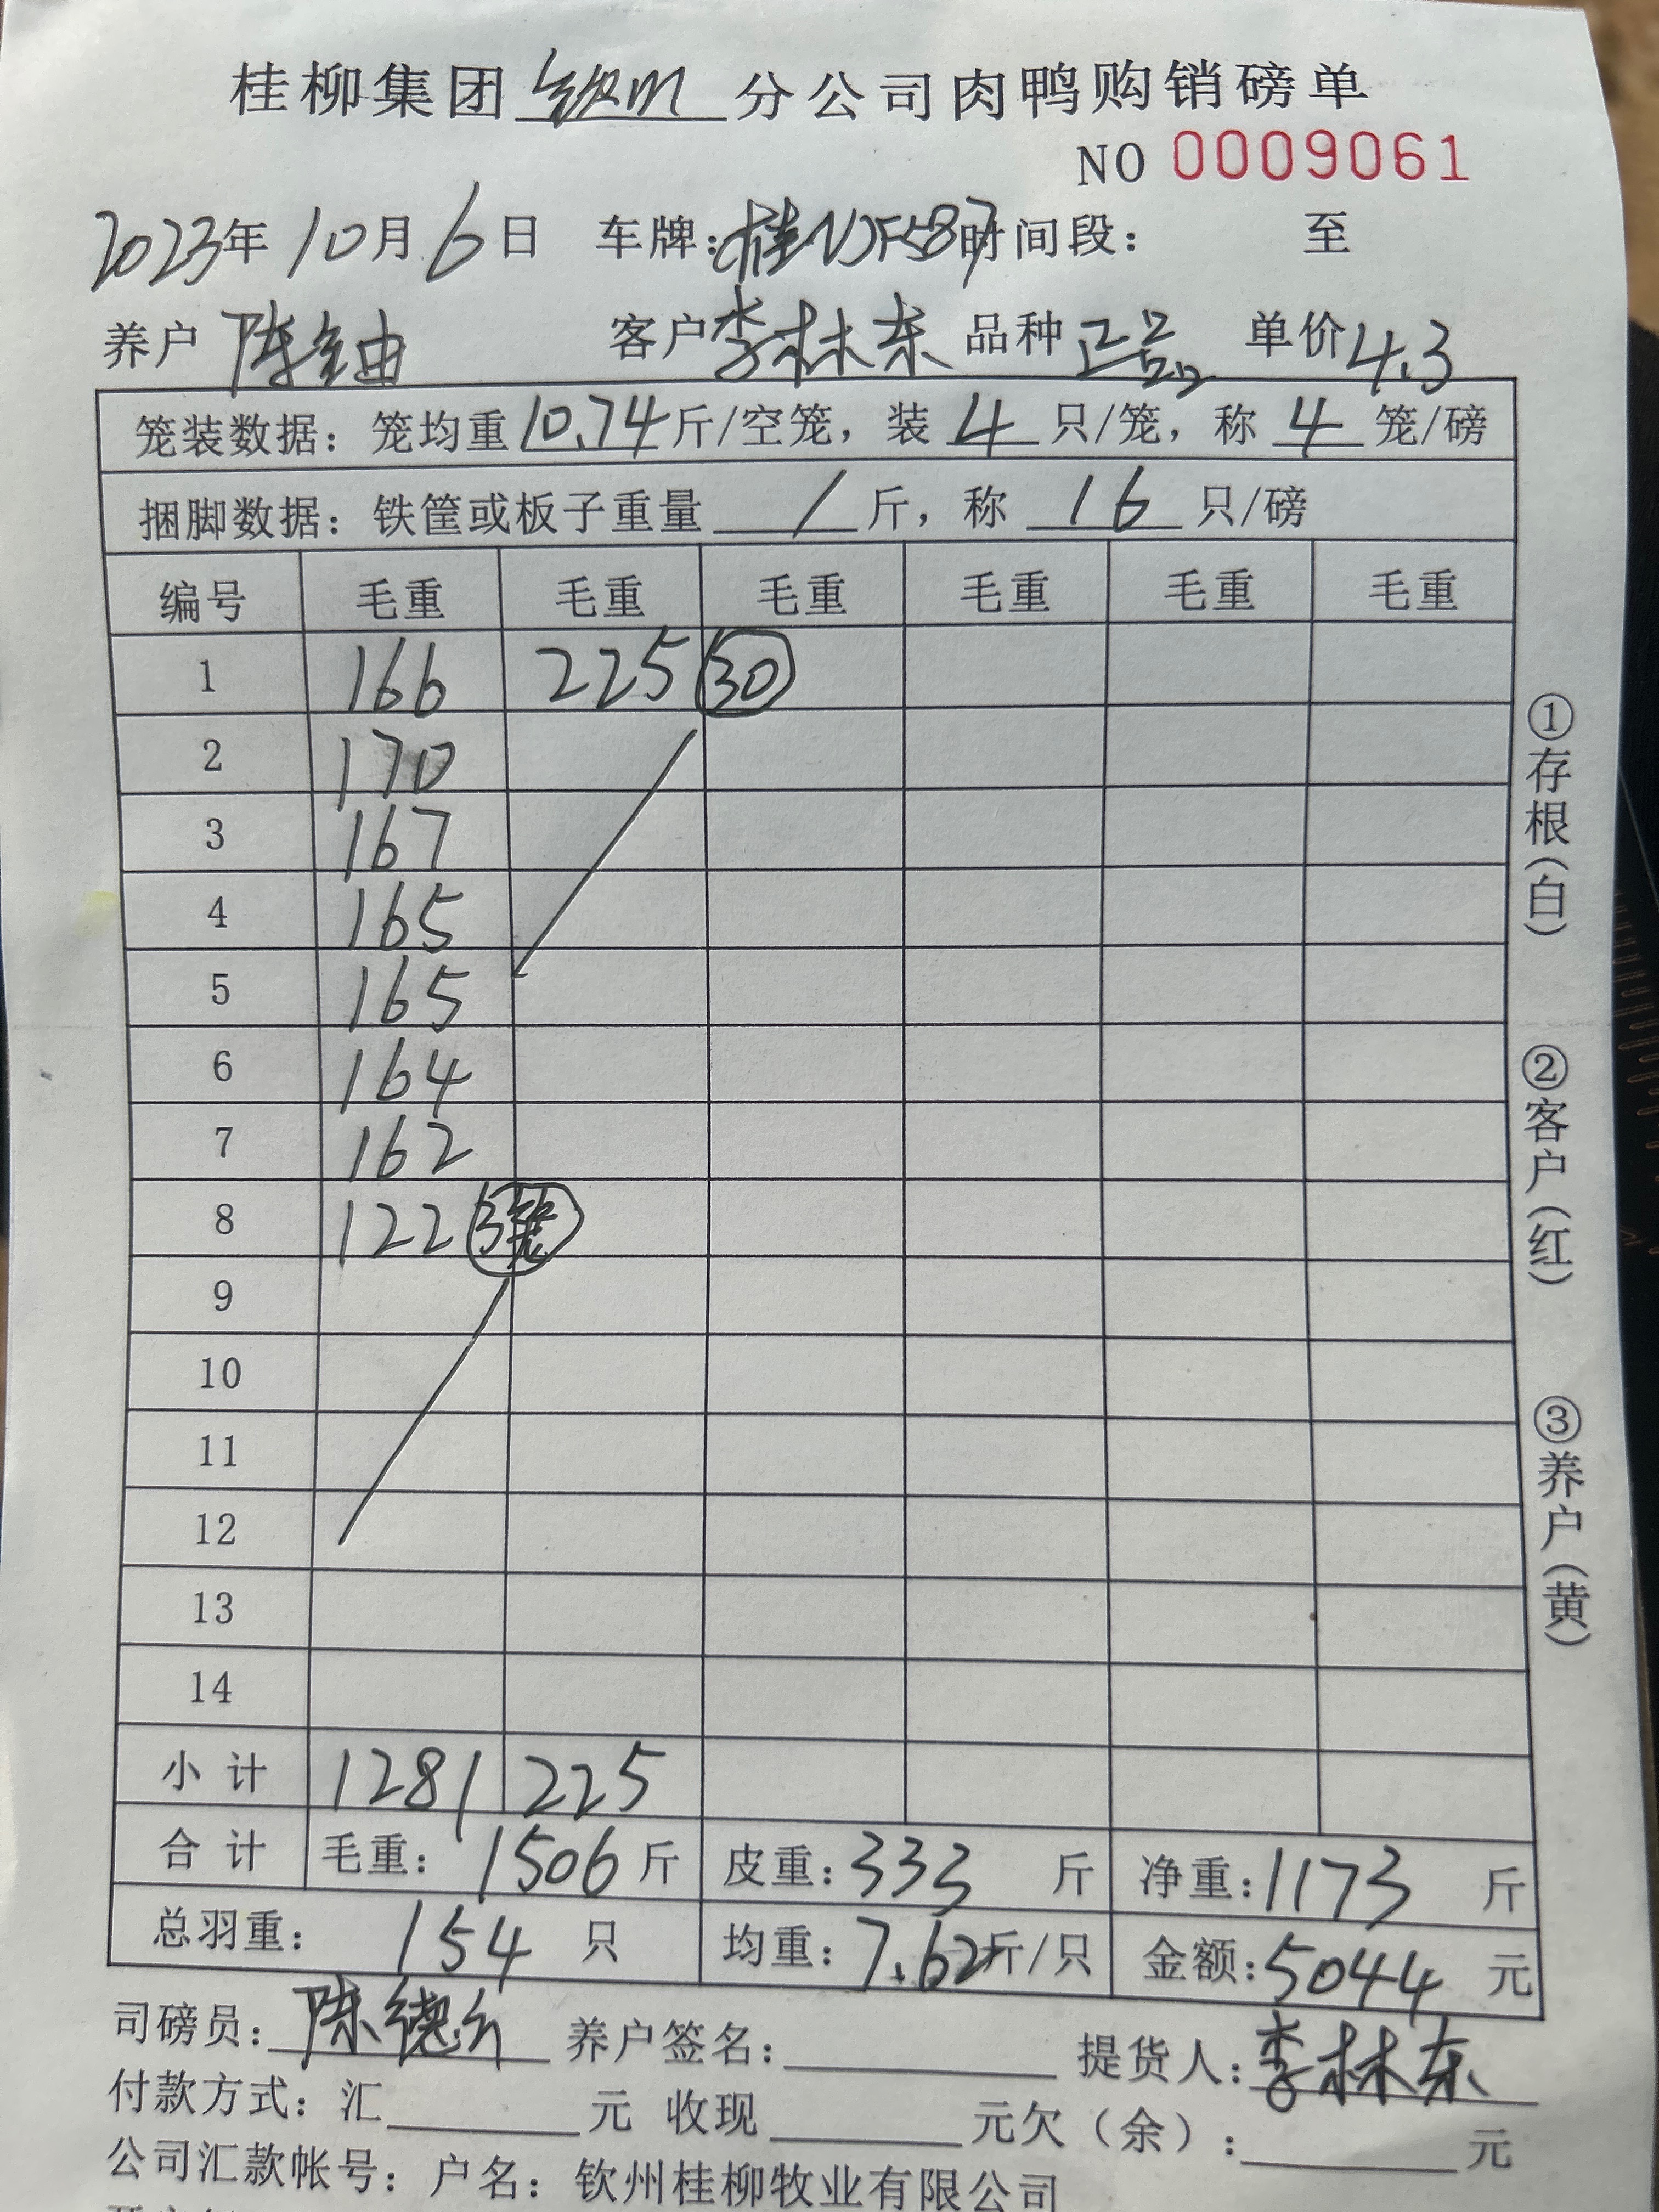 桂柳集团钦州分公司肉鸭购销磅单
NO 0009061
2023年10月6日 车牌:桂NJF587时间段: 至
养户 陈 客户李林东 品种 正品 单价4.3
笼装数据: 笼均重10.74斤/空笼, 装 4 只/笼, 称 4 笼/磅
捆脚数据: 铁筐或板子重量 / 斤, 称 16 只/磅
编号 毛重 毛重 毛重 毛重 毛重 毛重
1 166 225 30
2 170
3 167
4 165
5 165
6 164
7 162
8 122 3笼
9
10
11
12
13
14
小计 1281 225
合计 毛重: 1506斤 皮重:333 斤 净重:1173 斤
总羽重: 154 只 均重:7.62斤/只 金额:5044 元
司磅员:陈德 养户签名: 提货人:李林东
付款方式: 汇 元 收现 元欠(余): 元
公司汇款帐号: 户名: 钦州桂柳牧业有限公司
①存根(白)
②客户(红)
③养户(黄)